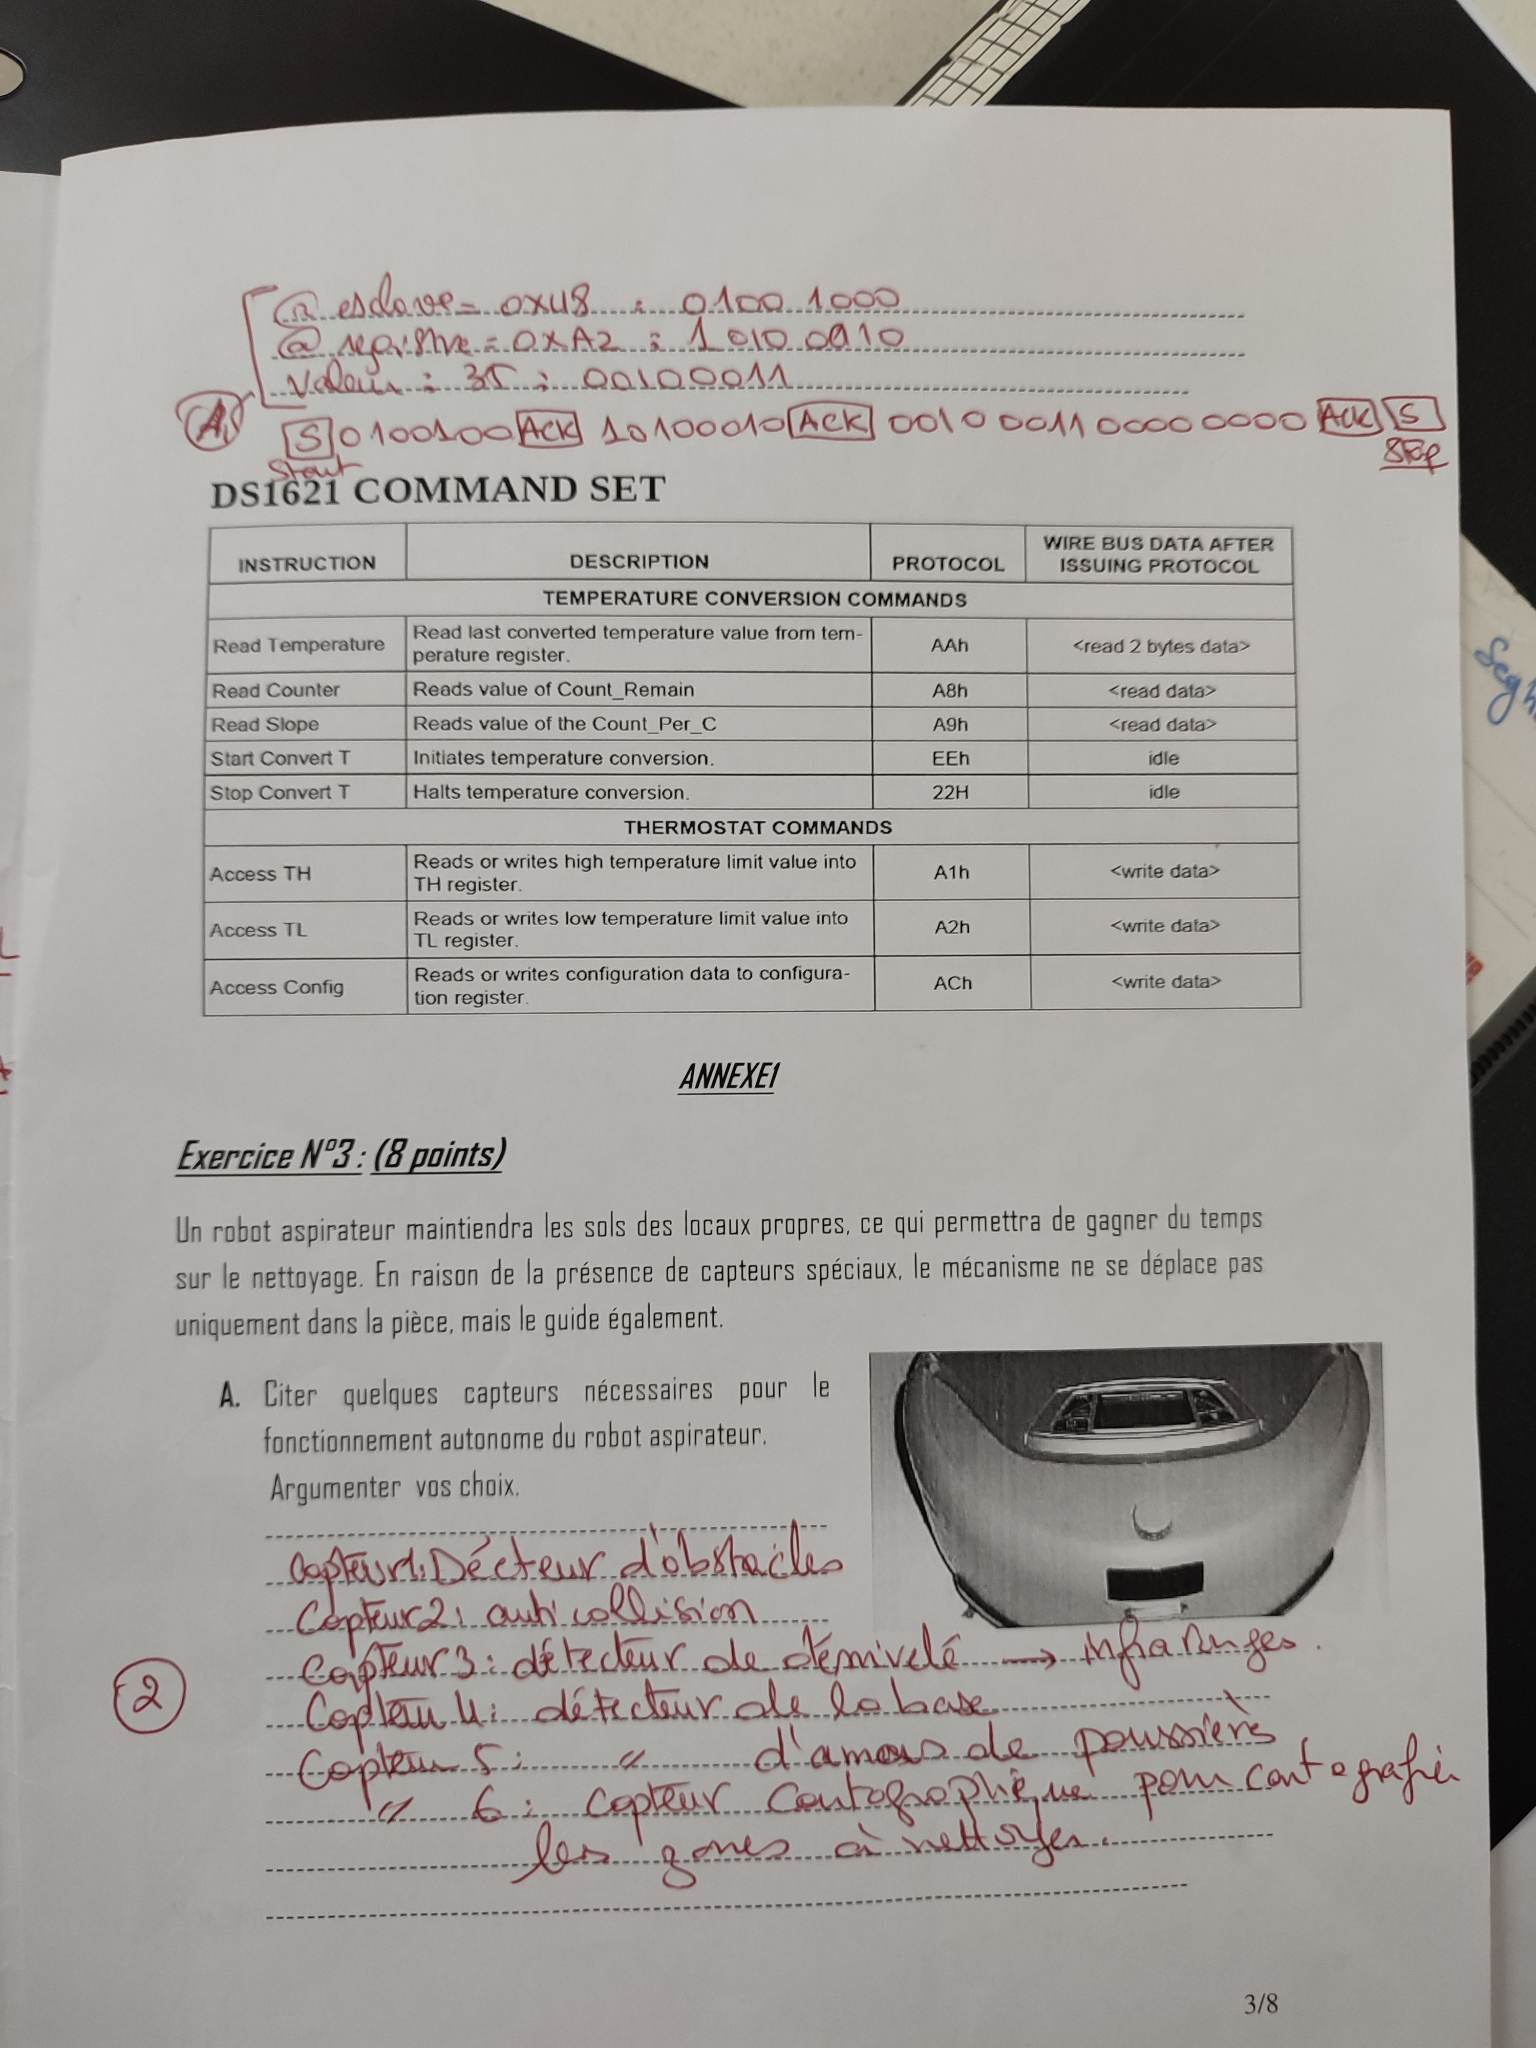 @ esclave = 0x48 : 0100 1000
@ registre = 0xA2 : 1010 0010
Valeur : 35 : 00100011
A1
S 0100100 ACK 10100010 ACK 00100011 00000000 ACK S
Start
Stop
DS1621 COMMAND SET
INSTRUCTION DESCRIPTION PROTOCOL WIRE BUS DATA AFTER ISSUING PROTOCOL
TEMPERATURE CONVERSION COMMANDS
Read Temperature Read last converted temperature value from tem-
perature register. AAh <read 2 bytes data>
Read Counter Reads value of Count_Remain A8h <read data>
Read Slope Reads value of the Count_Per_C A9h <read data>
Start Convert T Initiates temperature conversion. EEh idle
Stop Convert T Halts temperature conversion. 22H idle
THERMOSTAT COMMANDS
Access TH Reads or writes high temperature limit value into
TH register. A1h <write data>
Access TL Reads or writes low temperature limit value into
TL register. A2h <write data>
Access Config Reads or writes configuration data to configura-
tion register. ACh <write data>
ANNEXE1
Exercice N°3 : (8 points)
Un robot aspirateur maintiendra les sols des locaux propres, ce qui permettra de gagner du temps
sur le nettoyage. En raison de la présence de capteurs spéciaux, le mécanisme ne se déplace pas
uniquement dans la pièce, mais le guide également.
A. Citer quelques capteurs nécessaires pour le
fonctionnement autonome du robot aspirateur.
Argumenter vos choix.
Capteur1: Décteur d'obstacles
Capteur2: anti collision
Capteur3: détecteur de dénivelé → infrarouges.
Capteur 4: détecteur de la base
2
Capteur 5: " d'amas de poussière
" 6: capteur cartographique pour cartografier
les zones à nettoyer.
3/8